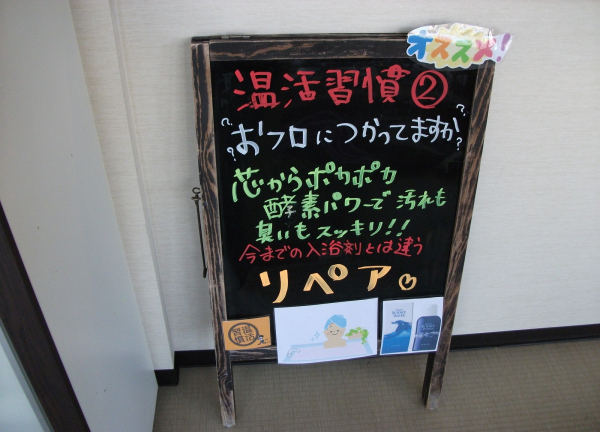 オススメ!
温活習慣②
おフロにつかってますか
芯からポカポカ
酵素パワーで汚れも
臭いもスッキリ!!
今までの入浴剤とは違う
リペア